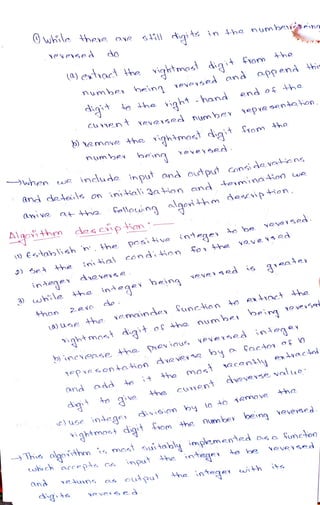 ① while there are still digits in the number being
reversed do
(a) extract the rightmost digit from the
number being reversed and append this
digit to the right-hand end of the
current reversed number representation.
b) remove the rightmost digit from the
number being reversed.
→ when we include input and output considerations
and details on initialization and termination we
arrive at the following algorithm description.
Algorithm description:-
1) Establish n, the positive integer to be reversed.
2) Set the initial condition for the reversed
integer dreverse.
3) while the integer being reversed is greater
than zero do.
(a) use the remainder function to extract the
rightmost digit of the number being reversed
b) increase the previous reversed integer
representation dreverse by a factor of 10
and add to it the most recently extracted
digit to give the current dreverse value.
c) use integer division by 10 to remove the
rightmost digit from the number being reversed.
→ This algorithm is most suitably implemented as a function
which accepts as input the integer to be reversed
and returns as output the integer with its
digits reversed